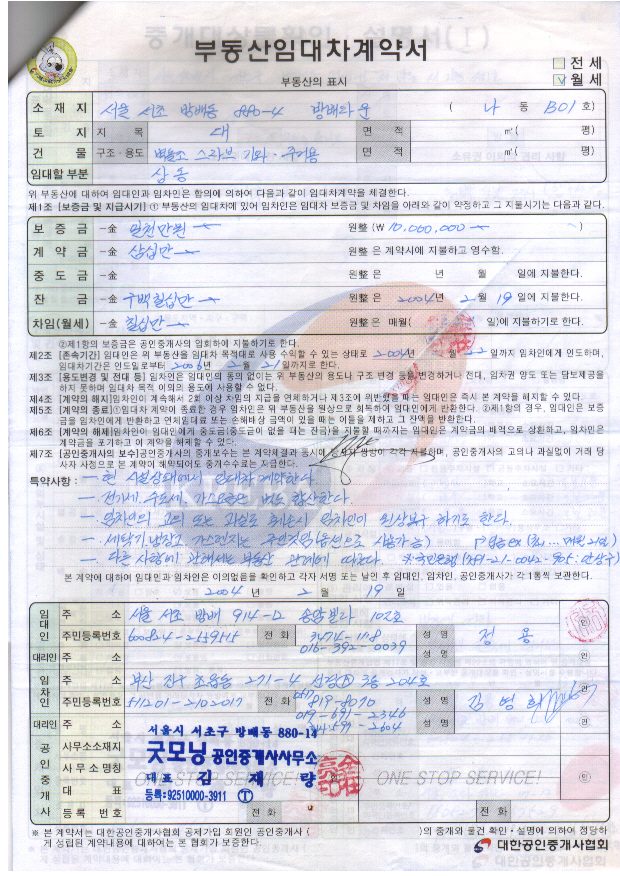 부동산임대차계약서
전 세
부동산의 표시
V 월 세
소 재 지 서울 서초 방배동 880-4 방배라운 ( 나 동 B01 호)
토 지 지 목 대 면 적 ㎡( 평)
건 물 구조·용도 벽돌조 스라브 기와·주거용 면 적 ㎡( 평)
임대할 부분
위 부동산에 대하여 임대인과 임차인은 합의에 의하여 다음과 같이 임대차계약을 체결한다.
제1조 [보증금 및 지급시기] ① 부동산의 임대차에 있어 임차인은 임대차 보증금 및 차임을 아래와 같이 약정하고 그 지불시기는 다음과 같다.
보 증 금 一金 일천만원 원整 (₩ 10,000,000 )
계 약 금 一金 삼십만 원整 은 계약시에 지불하고 영수함.
중 도 금 一金 원整 은 년 월 일에 지불한다.
잔 금 一金 구백칠십만 원整 은 2004 년 2 월 19 일에 지불한다.
차임(월세) 一金 칠십만 원整 은 매월( 일)에 지불하기로 한다.
②제1항의 보증금은 공인중개사의 입회하에 지불하기로 한다.
제2조 [존속기간] 임대인은 위 부동산을 임대차 목적대로 사용 수익할 수 있는 상태로 2004 년 2 월 22 일까지 임차인에게 인도하며,
임대차기간은 인도일로부터 2006 년 2 월 21 일까지로 한다.
제3조 [용도변경 및 전대 등] 임차인은 임대인의 동의 없이는 위 부동산의 용도나 구조 변경 등을 변경하거나 전대, 임차권 양도 또는 담보제공을
하지 못하며 임대차 목적 이외의 용도에 사용할 수 없다.
제4조 [계약의 해지] 임차인이 계속해서 2회 이상 차임의 지급을 연체하거나 제3조에 위반했을 때는 임대인은 즉시 본 계약을 해지할 수 있다.
제5조 [계약의 종료] ①임대차 계약이 종료한 경우 임차인은 위 부동산을 원상으로 회복하여 임대인에게 반환한다. ②제1항의 경우, 임대인은 보증
금을 임차인에게 반환하고 연체임대료 또는 손해배상 금액이 있을 때는 이들을 제하고 그 잔액을 반환한다.
제6조 [계약의 해제] 임차인이 임대인에게 중도금(중도금이 없을 때는 잔금)을 지불할 때까지는 임대인은 계약금의 배액으로 상환하고, 임차인은
계약금을 포기하고 이 계약을 해제할 수 있다.
제7조 [공인중개사의 보수] 공인중개사의 중개보수는 본 계약체결과 동시에 쌍방이 각각 지불하며, 공인중개사의 고의나 과실없이 거래 당
사자 사정으로 본 계약이 해약되어도 중개수수료는 지급한다.
특약사항 : - 현 시설상태에서 임대차 계약한다.
- 전기세. 수도세. 가스요금은 별도 합산한다.
- 임차인의 고의 또는 과실로 훼손시 임차인이 원상복구 하기로 한다.
- 세탁기, 냉장고, 가스렌지는 주인것임
- 다른 사항에 관해서는 부동산 관례에 따른다. 국민은행
본 계약에 대하여 임대인과 임차인은 이의없음을 확인하고 각자 서명 또는 날인 후 임대인, 임차인, 공인중개사가 각 1통씩 보관한다.
2004 년 2 월 19 일
임대인 주 소 서울 서초 방배 914-12 송암빌라 102호
주민등록번호 600824-2559515 전 화 3474-1118 016-392-0039 성 명 정 용 ㊞
대리인 주 소 성 명 ㊞
임차인 주 소 부산 진구 271-4 3동 204호
주민등록번호 511201-2102017 전 화 819-8070 성 명 김 병 희 ㊞
대리인 주 소 019-671-2346 성 명 ㊞
공인중개사 사무소소재지 서울시 서초구 방배동 880-14
사무소명칭 굿모닝 공인중개사사무소
대 표 대표 김 재 량 ONE STOP SERVICE!
등록 번호 등록:92510000-3911 전 화 전 화
※ 본 계약서는 대한공인중개사협회 공제가입 회원인 공인중개사 ( )의 중개와 물건 확인·설명에 의하여 정당하
게 성립된 계약내용에 대하여는 본 협회가 보증한다.
대한공인중개사협회